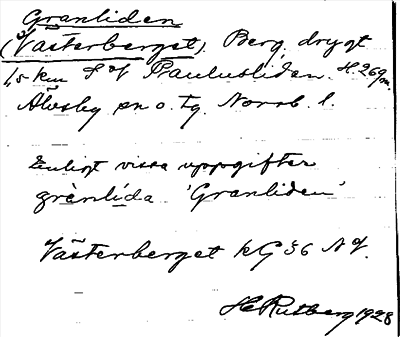 Granliden
(Västerberget). Berg, drygt
1,5 km S of Paulusliden. H. 269 m.
Älvsby sn o. tg. Norrb. l.
Enligt vissa uppgifter
grànlída 'Granliden'
Västerberget kG 36 NV.
H Rutberg 1928